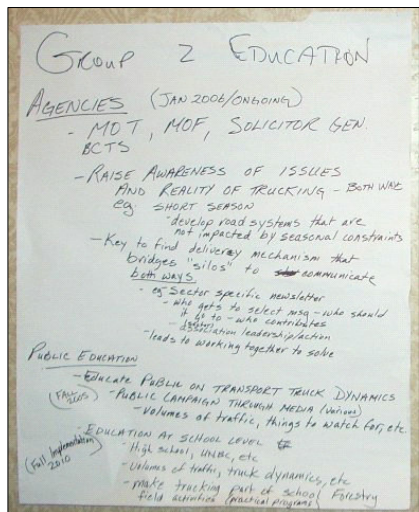 GROUP 2 EDUCATION
AGENCIES (JAN 2006/ONGOING)
- MOT, MOF, SOLICITOR GEN.
BCTS
- RAISE AWARENESS OF ISSUES
AND REALITY OF TRUCKING - BOTH WAY
eg: SHORT SEASON
- develop road systems that are
not impacted by seasonal constraints
- Key to find delivery mechanism that
bridges "silos" to communicate
both ways.
- eg Sector specific newsletter
- who gets to select msg - who should
it go to - who contributes
- association leadership/action
- leads to working together to solve
PUBLIC EDUCATION
- Educate PUBLIC ON TRANSPORT TRUCK DYNAMICS
(FALL 2005) - PUBLIC CAMPAIGN THROUGH MEDIA (various)
- volumes of traffic, things to watch for, etc
- EDUCATION AT SCHOOL LEVEL
(Full Implementation 2010) - High school, UNBC, etc
- volumes of traffic, truck dynamics, etc
- make trucking part of school Forestry
field activities (practical programs)